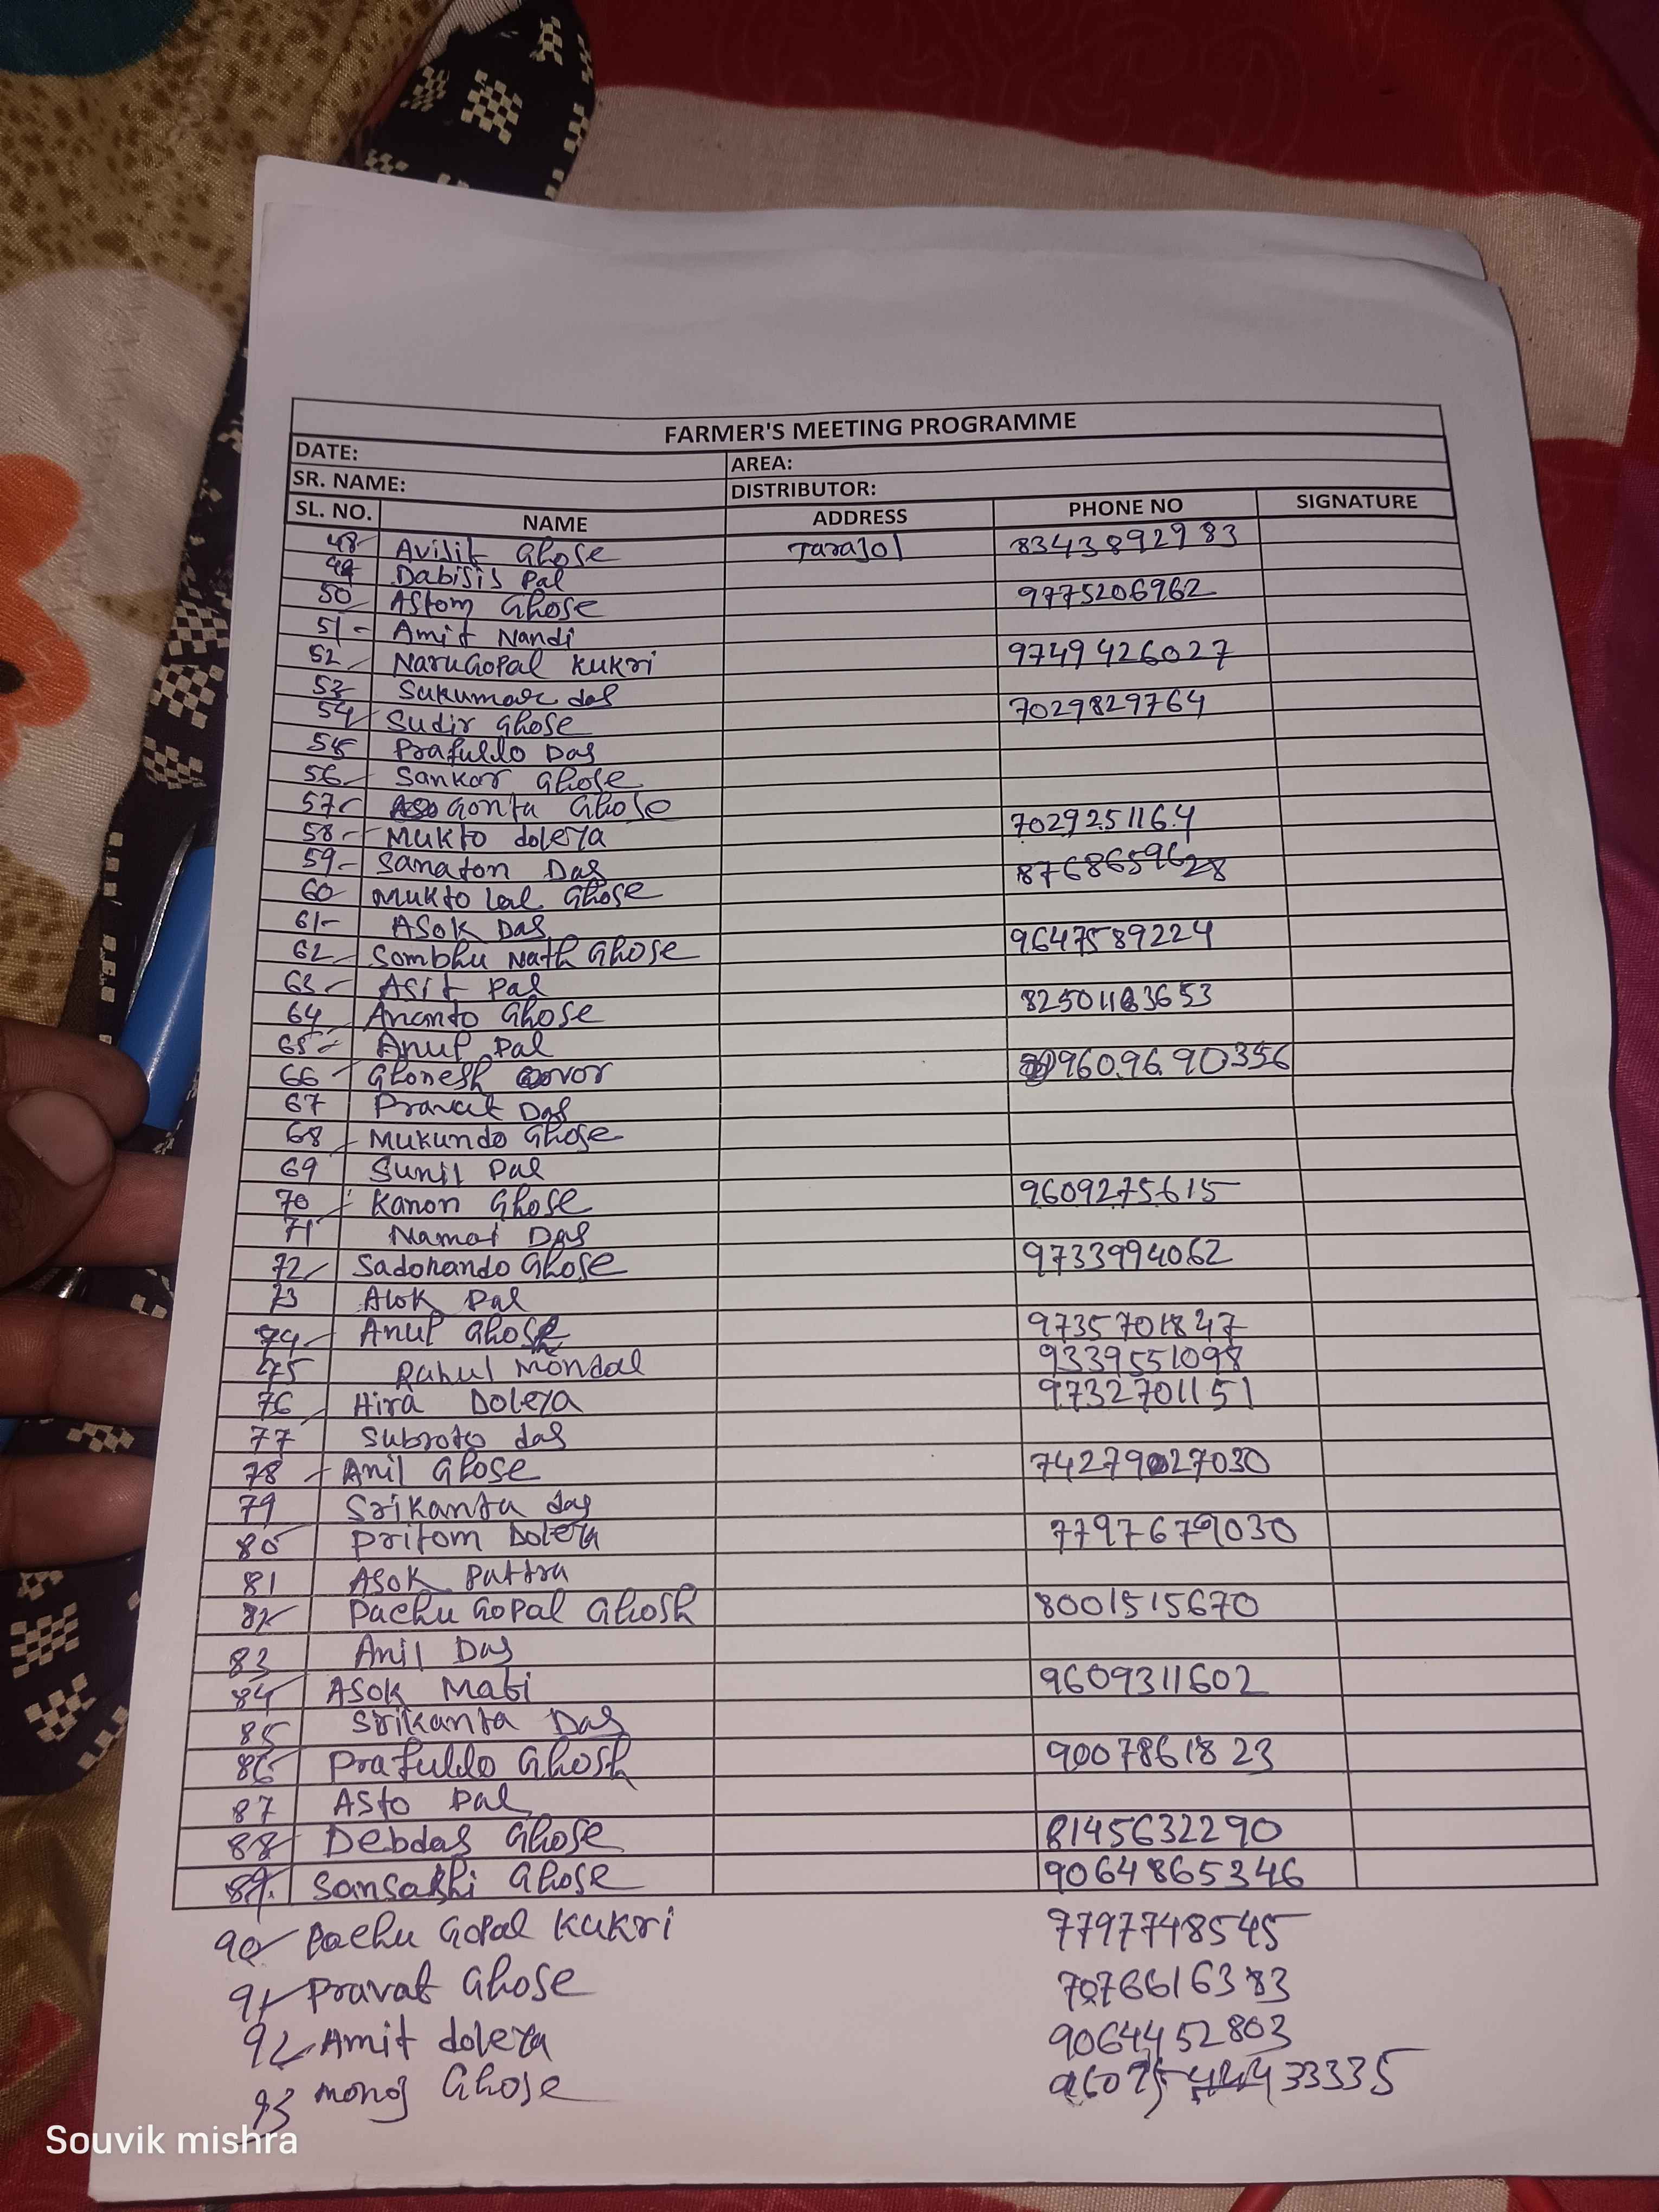 FARMER'S MEETING PROGRAMME
DATE: AREA:
SR. NAME: DISTRIBUTOR:
SL. NO. NAME ADDRESS PHONE NO SIGNATURE
48 Avisit Ghose Tarajol 8343892983
49 Dabisis Pal
50 Astom Ghose 9775206962
51 - Amit Nandi
52 NaruGopal Kukri 9749426027
53 Sukumar das
54 Sudir Ghose 7029829764
55 Prafullo Das
56 Sankar Ghose
57 Gonta Ghose
58 - Mukto dolera 7029251164
59 - Sanaton Das 8768659628
60 Mukto lal Ghose
61 - Asok Das
62 Sombhu Nath Ghose 9647589224
63 - Asit Pal
64 Ananto Ghose 8250113653
65 - Anup Pal
66 - Ghonesh 9609690356
67 Pravat Das
68 Mukundo Ghose
69 Sunil Pal
70 Kanon Ghose 9609275615
71 Namai Das
72 Sadonando Ghose 9733994062
73 Alok Pal
74 - Anup Ghose 9735701847
75 Rahul Mondal 9339551098
76 Hira Dolera 9732701151
77 Subroto das
78 - Anil Ghose
79 Srikanta das
80 Pritom Dolera 7797679030
81 Asok Pattra
82 Pachu Gopal Ghosh 8001515670
83 Anil Das
84 Asok Mati 9609311602
85 Srikanta Das
86 Prafullo Ghosh 9007861823
87 Asto Pal
88 Debdas Ghose 8145632290
89. Sansakhi Ghose 9064865346
90 Pachu Gopal Kukri 7797748545
91 Pravat Ghose 7076616383
92 Amit dolera 9064452803
93 monoj Ghose
Souvik mishra